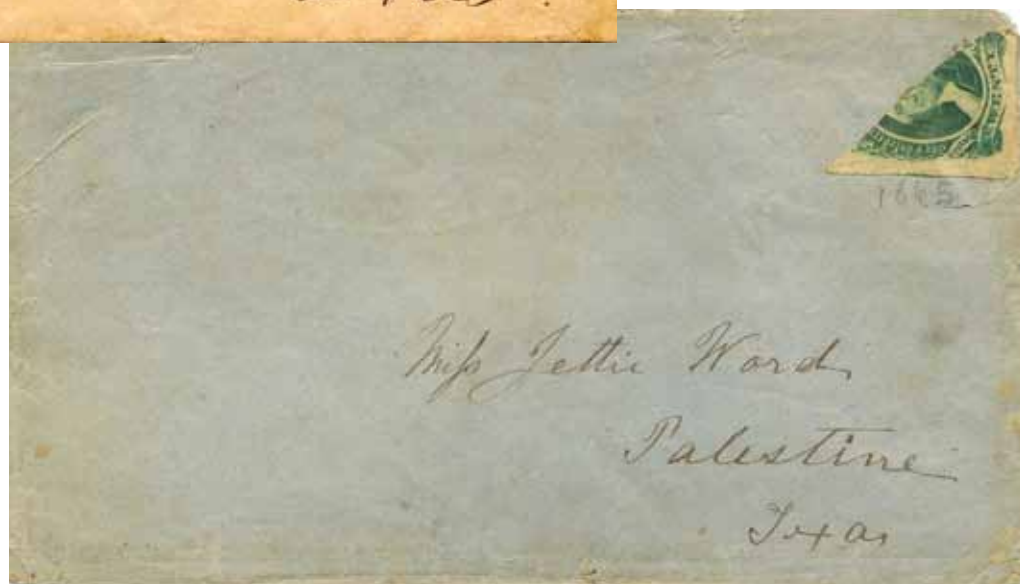 1665
Miss Jettie Word
Palestine
Texas